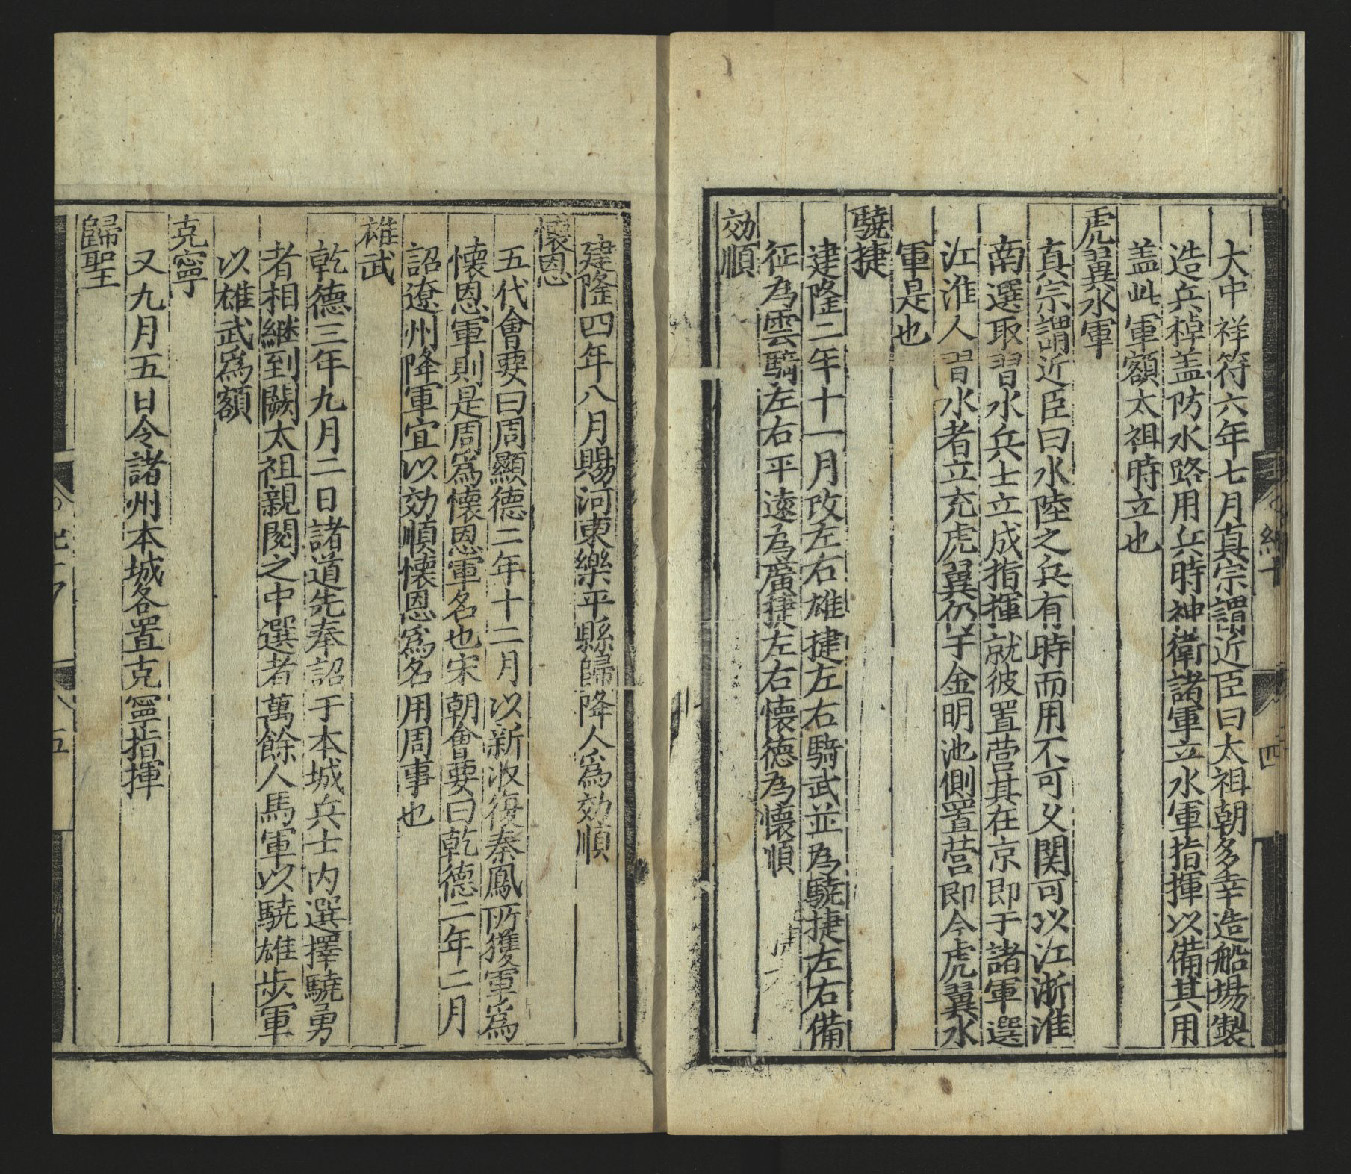 大中祥符六年七月真宗謂近臣曰太祖朝多幸造船場製
造兵棹盖防水路用兵時神衛諸軍立水軍指揮以備其用
盖此軍額太祖時立也
虎翼水軍
真宗謂近臣曰水陸之兵有時而用不可乂関可以江浙淮
南選取習水兵士立成指揮就彼置营其在京即于諸軍選
江淮人習水者立充虎翼仍于金明池側置营即今虎翼水
軍是也
驍捷
建隆二年十一月改左右雄捷左右驍武並為驍捷左右備
征為雲騎左右平遠為廣捷左右懐德為懐順
効順
建隆四年八月賜河東樂平縣歸降人爲効順
懐恩
五代會要曰周顯德二年十二月以新收復秦鳳所獲軍爲
懐恩軍則是周爲懐恩軍名也宋朝會要曰乾德二年二月
詔遼州降軍宜以効順懐恩爲名用周事也
雄武
乾德三年九月二日諸道先奉詔于本城兵士内選擇驍勇
者相継到闕太祖親閱之中選者萬餘人馬軍以驍雄步軍
以雄武爲額
克寧
又九月五日令諸州本城各置克寧指揮
歸聖
四
五